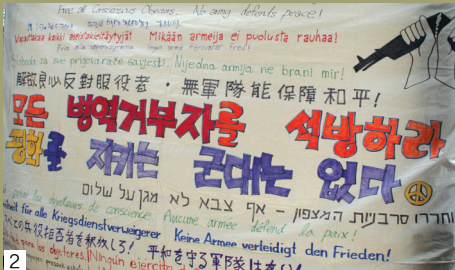 Free all Conscientious Objectors. No army defends peace!
Vapauttakaa kaikki aseistakieltäytyjät Mikään armeija ei puolusta rauhaa!
Sloboda za sve prigovarače savjesti. Nijedna armija ne brani mir!
解放良心反對服役者·無軍隊能保障和平!
모든 병역거부자를 석방하라
평화를 지키는 군대는 없다
סרבניות המצפון – אף צבא לא מגן על שלום
pour les objecteurs de conscience Aucune armée défend la paix!
für alle Kriegsdienstverweigerer Keine Armee verteidigt den Frieden!
兵役拒否者を釈放しろ! 平和を守る軍隊はない!
para os objetores. ¡Ningún ejército
2